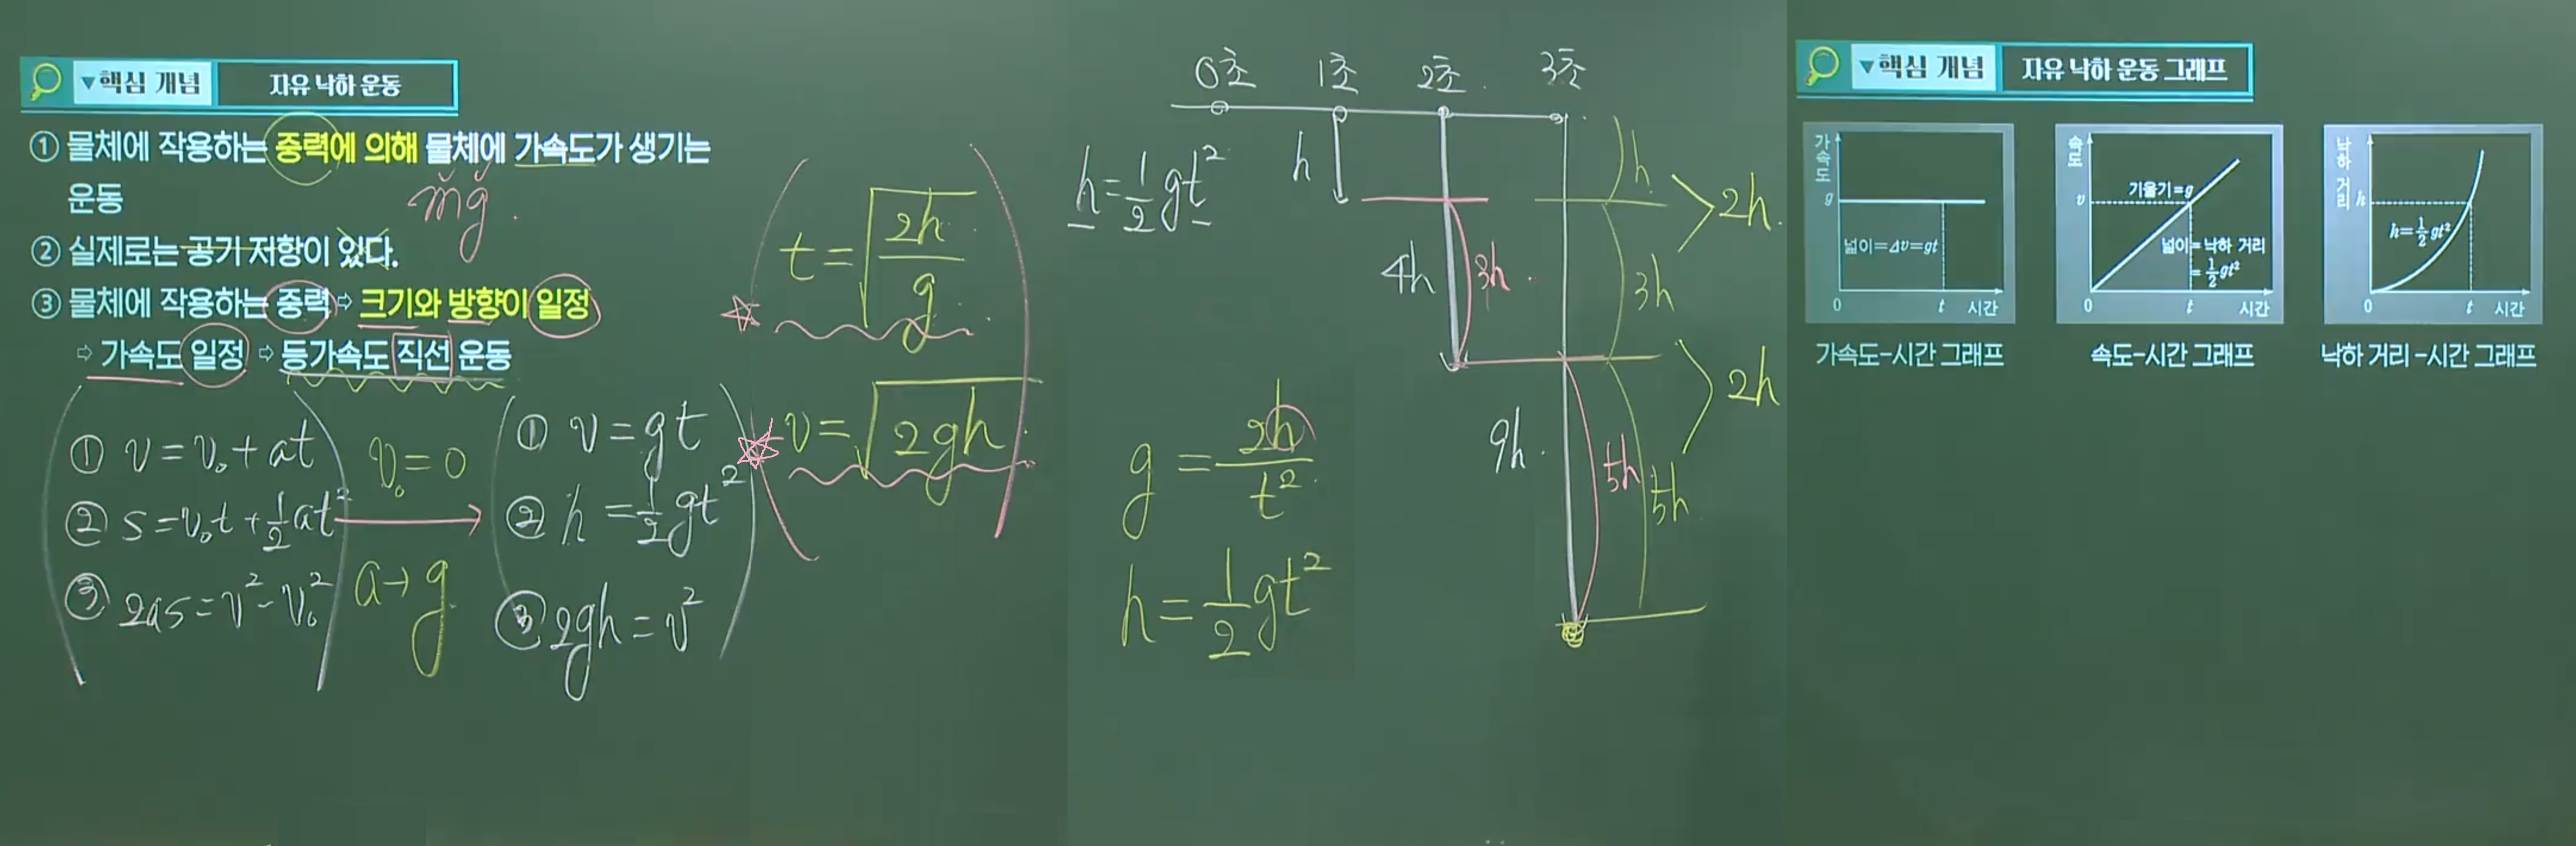 ▼핵심 개념 자유 낙하 운동
① 물체에 작용하는 중력에 의해 물체에 가속도가 생기는
운동
mg
② 실제로는 공기 저항이 있다.
③ 물체에 작용하는 중력 ⇨ 크기와 방향이 일정
⇨ 가속도 일정 ⇨ 등가속도 직선 운동
① v = v₀ + at
② s = v₀t + ½at²
③ 2as = v² - v₀²
v₀ = 0
a → g
① v = gt
② h = ½gt²
③ 2gh = v²
t = √(2h/g)
v = √(2gh)
0초 1초 2초 3초
h = ½gt²
h
4h 3h
9h 5h
h
3h
5h
2h
2h
g = 2h/t²
h = ½gt²
▼핵심 개념 자유 낙하 운동 그래프
가속도
g
넓이=Δv=gt
0 t 시간
가속도-시간 그래프
속도
v
기울기=g
넓이=낙하 거리
=½gt²
0 t 시간
속도-시간 그래프
낙하 거리
h
h=½gt²
0 t 시간
낙하 거리 -시간 그래프